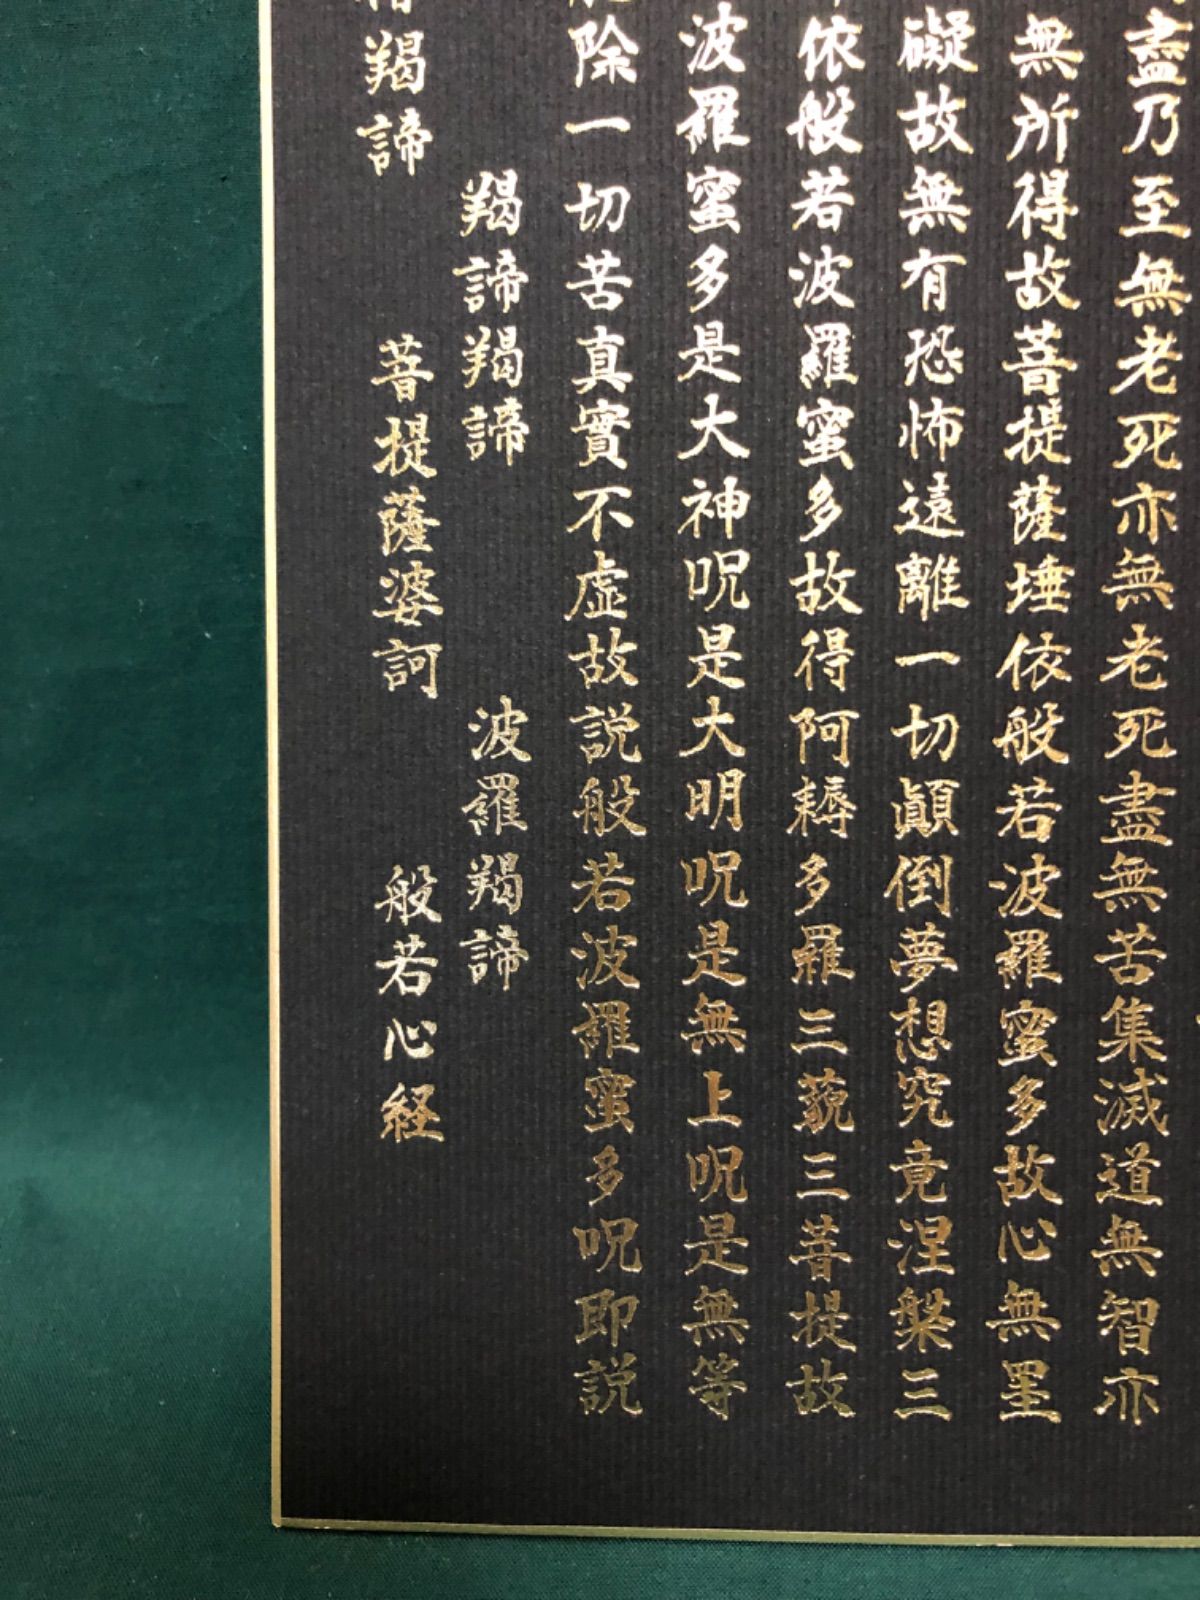 盡乃至無老死亦無老死盡無苦集滅道無智亦
無所得故菩提薩埵依般若波羅蜜多故心無罣
礙故無有恐怖遠離一切顚倒夢想究竟涅槃三
依般若波羅蜜多故得阿耨多羅三藐三菩提故
波羅蜜多是大神呪是大明呪是無上呪是無等
除一切苦真實不虚故説般若波羅蜜多呪即説
羯諦羯諦 波羅羯諦
羯諦 菩提薩婆訶 般若心経